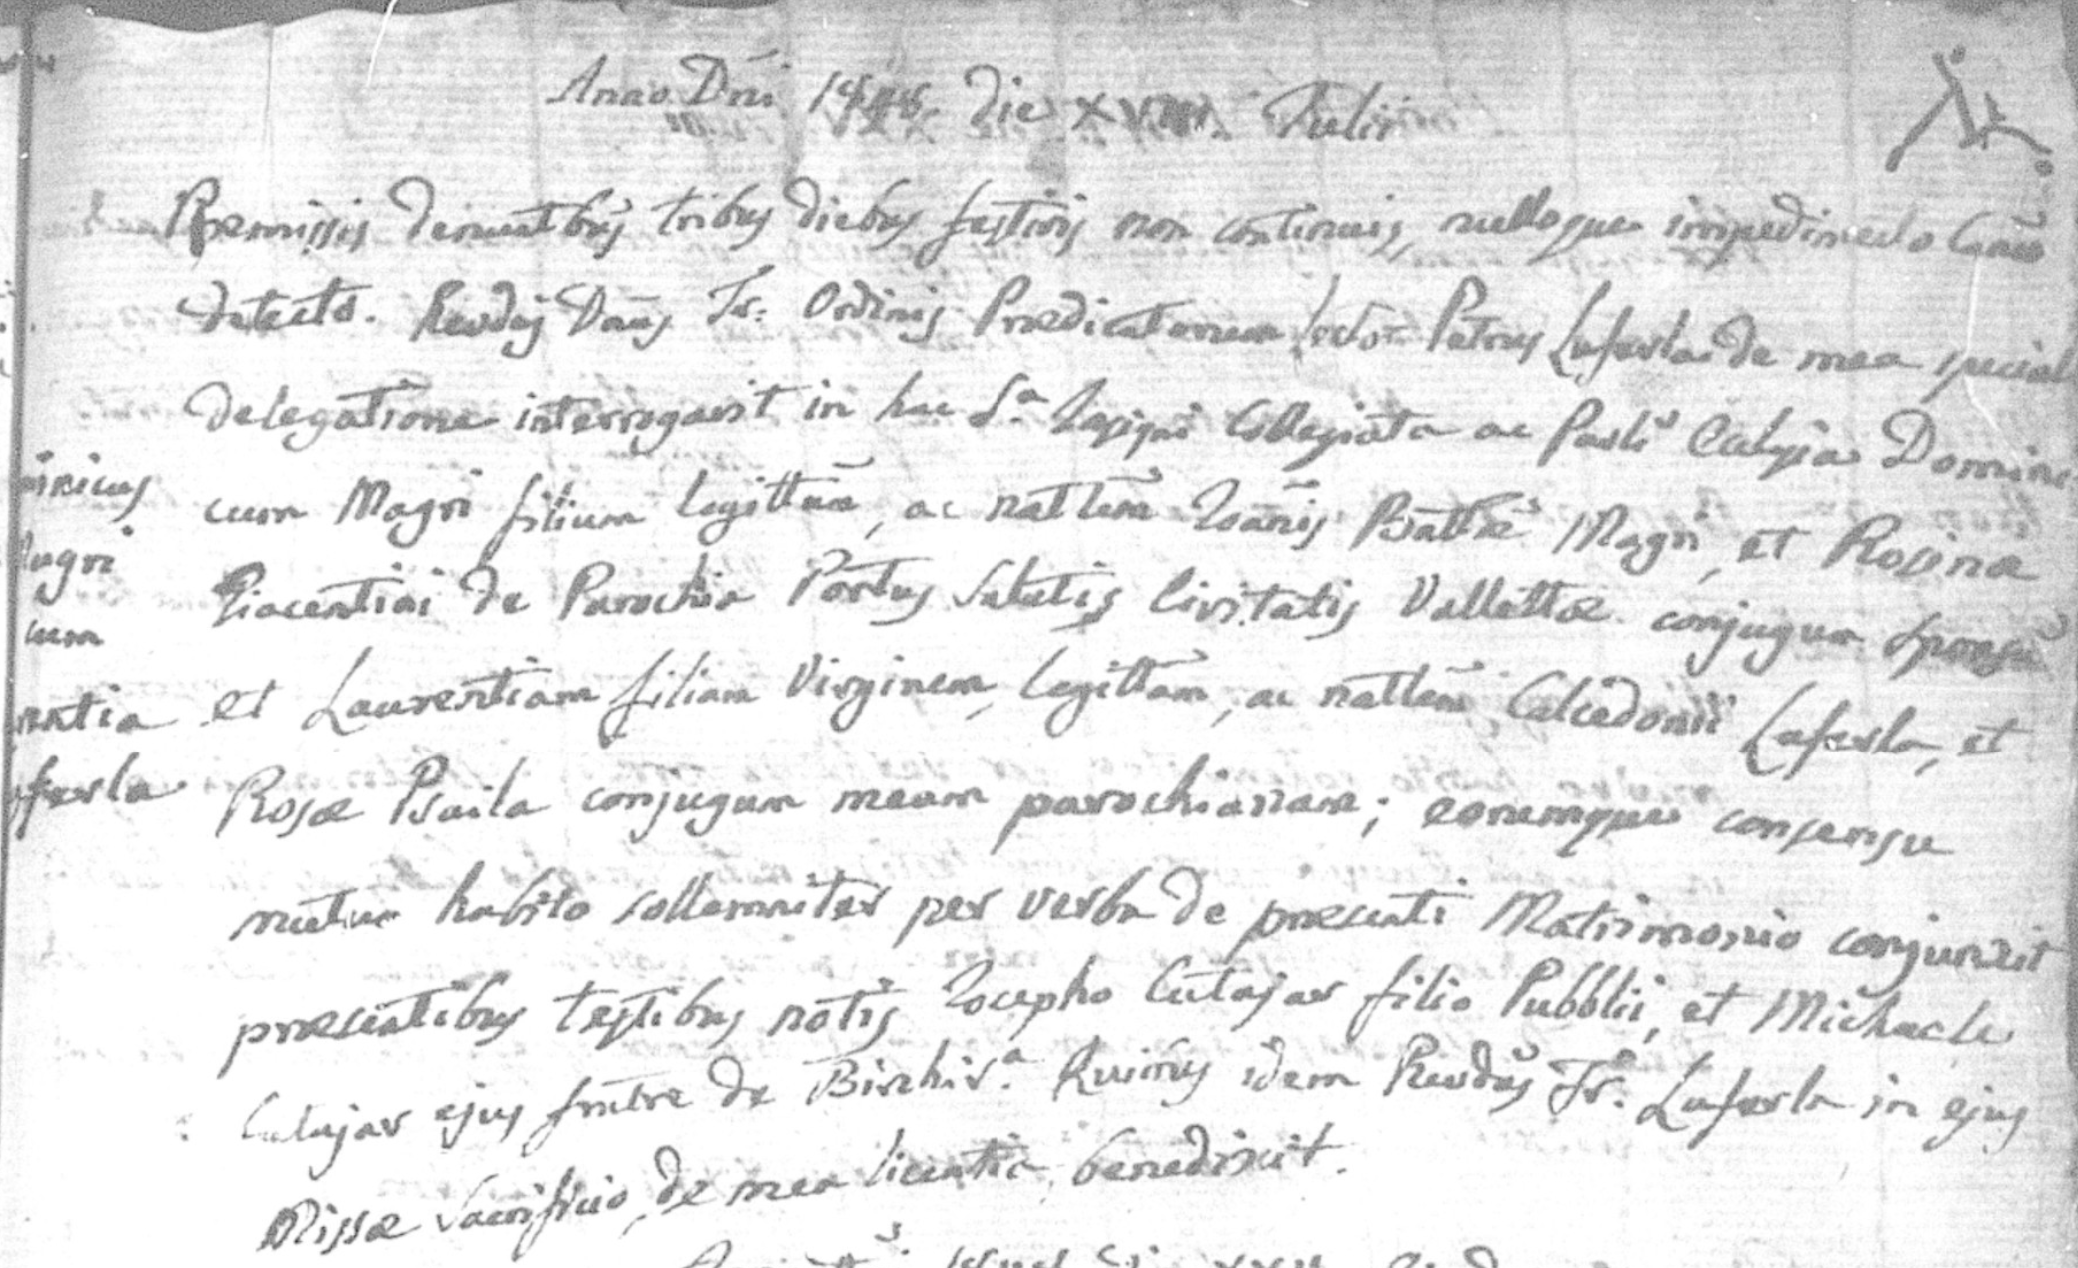 Anno Dñi die XVIII. Julii
Præmissis denuntbus tribus diebus festivis non continuis, nulloque impedimento Canco
detecto. Revdus Dnus Fr: Ordinis Prædicatorum Lector Petrus Laferla de mea special
delegatione interrogavit in hac Sa Insigni Collegiata ac Parli Ecclesia Domini
cum Magri filium legittum, ac natlem Joannis Battæ Magri, et Rosinæ
inicus
Piacentini de Parochia Portus Salutis Civitatis Vallettæ conjugum sponsũ
agri
cum
et Laurentiam filiam Virginem, legittam, ac natlem Calcedonii Laferla, et
ntia
Rosæ Psaila conjugum meam parochianam; eorumque consensu
ferla
mutuo habito sollemniter per verba de præsenti Matrimonio conjunxit
præsentibus testibus notis Josepho Cutajar filio Pubblii, et Michaele
Cutajar ejus fratre de Birchira. Quinus idem Revdus Fr. Laferla in ejus
Missæ Sacrificio, de mea licentia, benedixit.